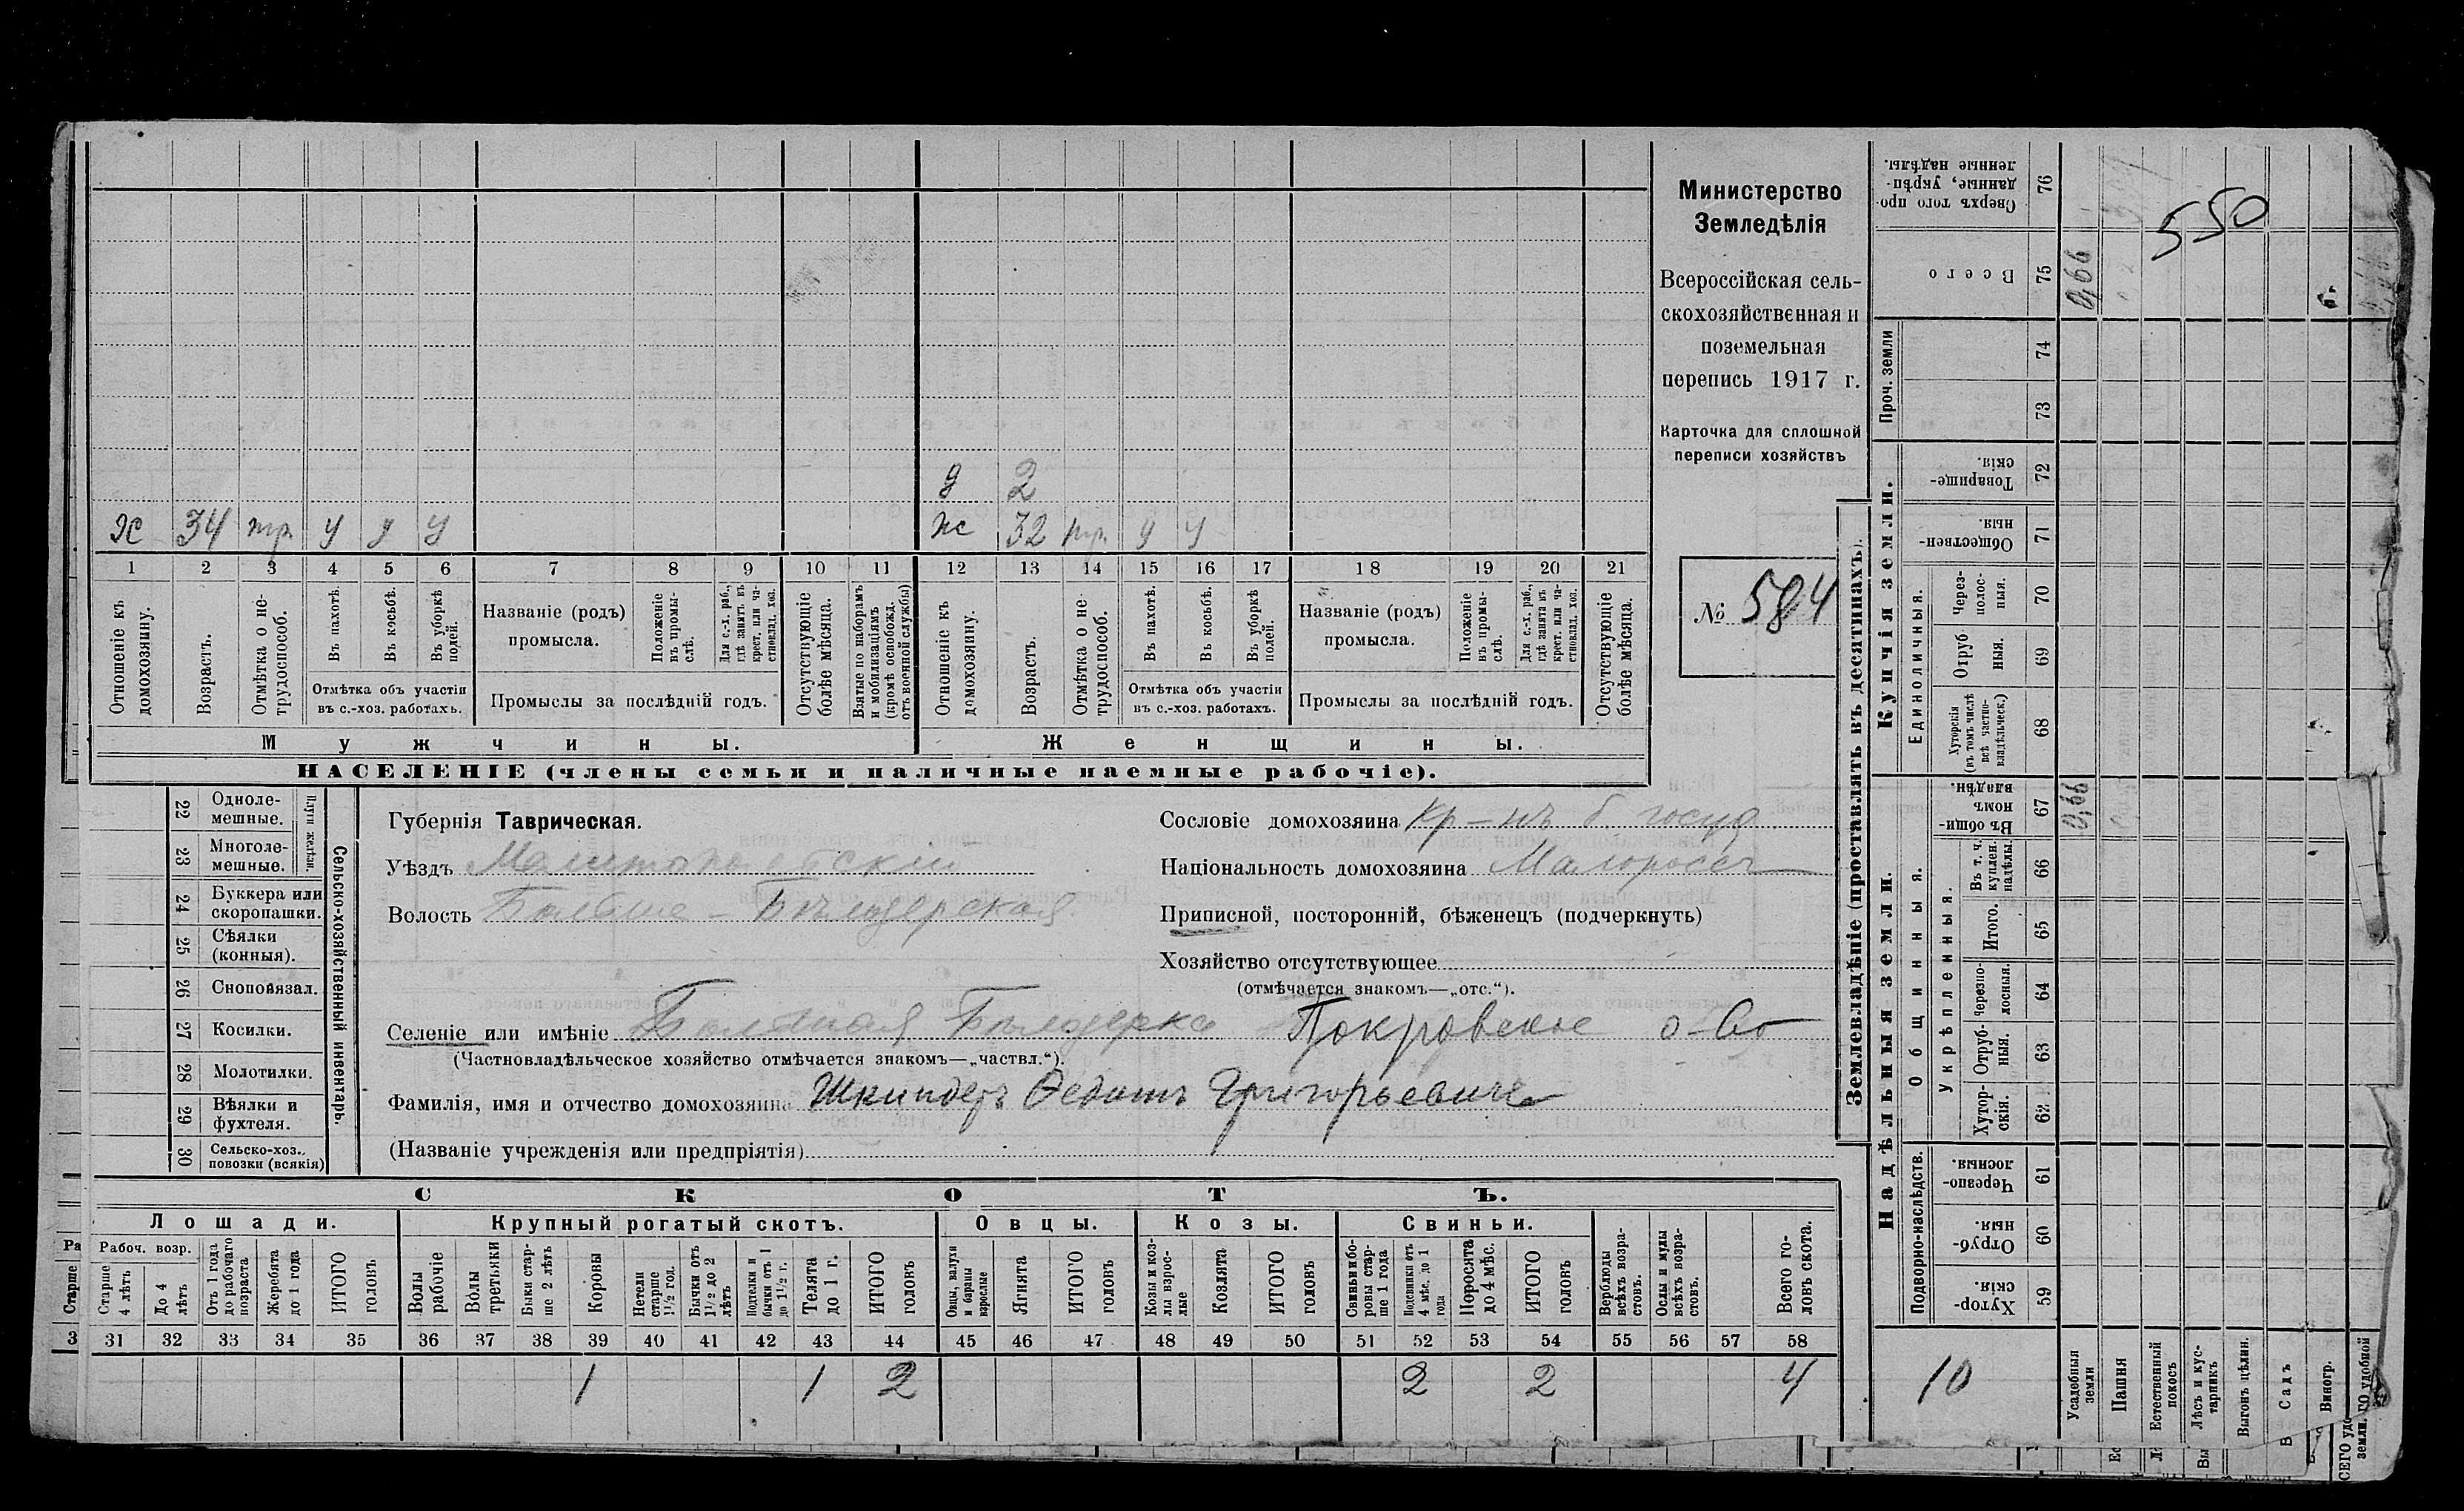 Министерство
Земледѣлія
Всероссійская сель-
скохозяйственная и
поземельная
перепись 1917 г.
Карточка для сплошной
переписи хозяйствъ
№ 584
550
д 2
х 34 тр. у у у
ж 32 тр. у у
1 2 3 4 5 6 7 8 9 10 11 12 13 14 15 16 17 18 19 20 21
Отношеніе къ домохозяину.
Возрастъ.
Отмѣтка о не-трудоспособ.
Въ пахотѣ.
Въ косьбѣ.
Въ уборкѣ полей.
Отмѣтка объ участіи
въ с.-хоз. работахъ.
Названіе (родъ)
промысла.
Положеніе въ промы-слѣ.
Для с.-х. раб., гдѣ занятъ въ крест. или ча-стновлад. хоз.
Промыслы за послѣдній годъ.
Отсутствующіе болѣе мѣсяца.
Взятые по наборамъ и мобилизаціямъ (кромѣ освобожд. отъ военной службы)
Отношеніе къ домохозяину.
Возрастъ.
Отмѣтка о не-трудоспособ.
Въ пахотѣ.
Въ косьбѣ.
Въ уборкѣ полей.
Отмѣтка объ участіи
въ с.-хоз. работахъ.
Названіе (родъ)
промысла.
Положеніе въ промы-слѣ.
Для с.-х. раб., гдѣ занята въ крест. или ча-стновлад. хоз.
Промыслы за послѣдній годъ.
Отсутствующіе болѣе мѣсяца.
Мужчины. Женщины.
НАСЕЛЕНІЕ (члены семьи и наличные наемные рабочіе).
Сельско-хозяйственный инвентарь.
Плуги желѣзн.
22 Одноле-мешные.
23 Многоле-мешные.
24 Буккера или скоропашки.
25 Сѣялки (конныя).
26 Сноповязал.
27 Косилки.
28 Молотилки.
29 Вѣялки и фухтеля.
30 Сельско-хоз., повозки (всякія)
Губернія Таврическая.
Уѣздъ Мелитопольскій
Волость Больше-Бѣлозерская
Сословіе домохозяина Кр-нъ б. госуд.
Національность домохозяина Малоросс
Приписной, посторонній, бѣженецъ (подчеркнуть)
Хозяйство отсутствующее
(отмѣчается знакомъ—„отс.“).
Селеніе или имѣніе Большая Бѣлозерка Покровское о-во
(Частновладѣльческое хозяйство отмѣчается знакомъ—„частвл.“).
Фамилія, имя и отчество домохозяина Шкиндеръ Ѳедотъ Григорьевичъ
(Названіе учрежденія или предпріятія)
СКОТЪ.
Лошади. Крупный рогатый скотъ. Овцы. Козы. Свиньи.
Рабоч. возр.
Старше 4 лѣтъ
До 4 лѣтъ
Отъ 1 года до рабочаго возраста
Жеребята до 1 года
ИТОГО головъ
Волы рабочіе
Волы третьяки
Быки стар-ше 2 лѣтъ
Коровы
Нетели старше 1½ год.
Бычки отъ 1½ до 2 лѣтъ
Подтелки и бычки отъ 1 до 1½ г.
Телята до 1 г.
ИТОГО головъ
Овцы, валухи и бараны взрослые
Ягнята
ИТОГО головъ
Козы и коз-лы взрос-лые
Козлята
ИТОГО головъ
Свиньи и бо-ровы стар-ше 1 года
Подсвинки отъ 4 мѣс. до 1 года
Поросята до 4 мѣс.
ИТОГО головъ
Верблюды всѣхъ возра-стовъ.
Ослы и мулы всѣхъ возра-стовъ.
Всего го-ловъ скота.
31 32 33 34 35 36 37 38 39 40 41 42 43 44 45 46 47 48 49 50 51 52 53 54 55 56 57 58
1 1 2 2 2 4
Землевладѣніе (проставлять въ десятинахъ).
Надѣльныя земли. Купчія земли. Проч. земли
Подворно-наслѣдств.
Общинныя.
Укрѣпленныя.
Единоличныя.
59 Хутор-скія.
60 Отруб-ныя.
61 Черезпо-лосныя.
62 Хутор-скія.
63 Отруб-ныя.
64 Черезпо-лосныя.
65 Итого.
66 Въ т. ч. куплен. надѣлы.
67 Въ общи-номъ владѣн.
68 Хуторскія (въ томъ числѣ всѣ частно-владѣльческ.)
69 Отруб ныя.
70 Через-полос-ныя.
71 Обществен-ныя.
72 Товарище-скія.
73
74
75 Всего
76 Сверхъ того про-данные, укрѣп-ленные надѣлы.
10
Усадебныя земли 0,66 0,66
Пашня
Естественный покосъ
Лѣсъ и кус-тарникъ
Выгонъ цѣлин.
Садъ
Виногр.